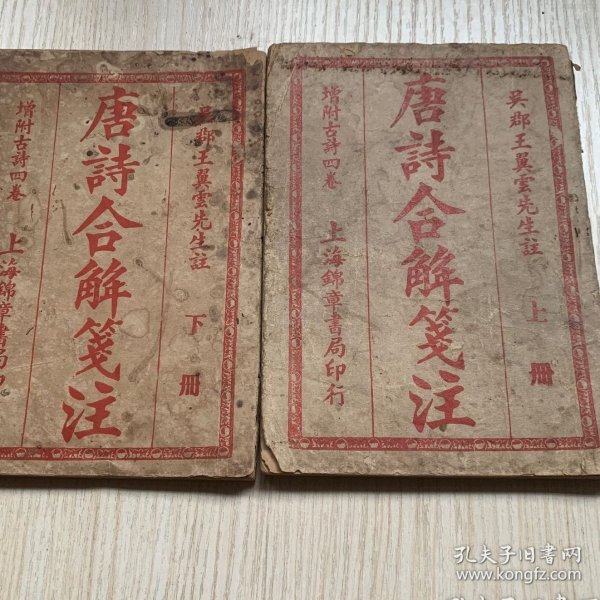 吳郡王翼雲先生註
上冊
唐詩合解箋注
增附古詩四卷
上海錦章書局印行
吳郡王翼雲先生註
下冊
唐詩合解箋注
增附古詩四卷
上海錦章書局印
孔夫子旧书网
www.kongfz.com